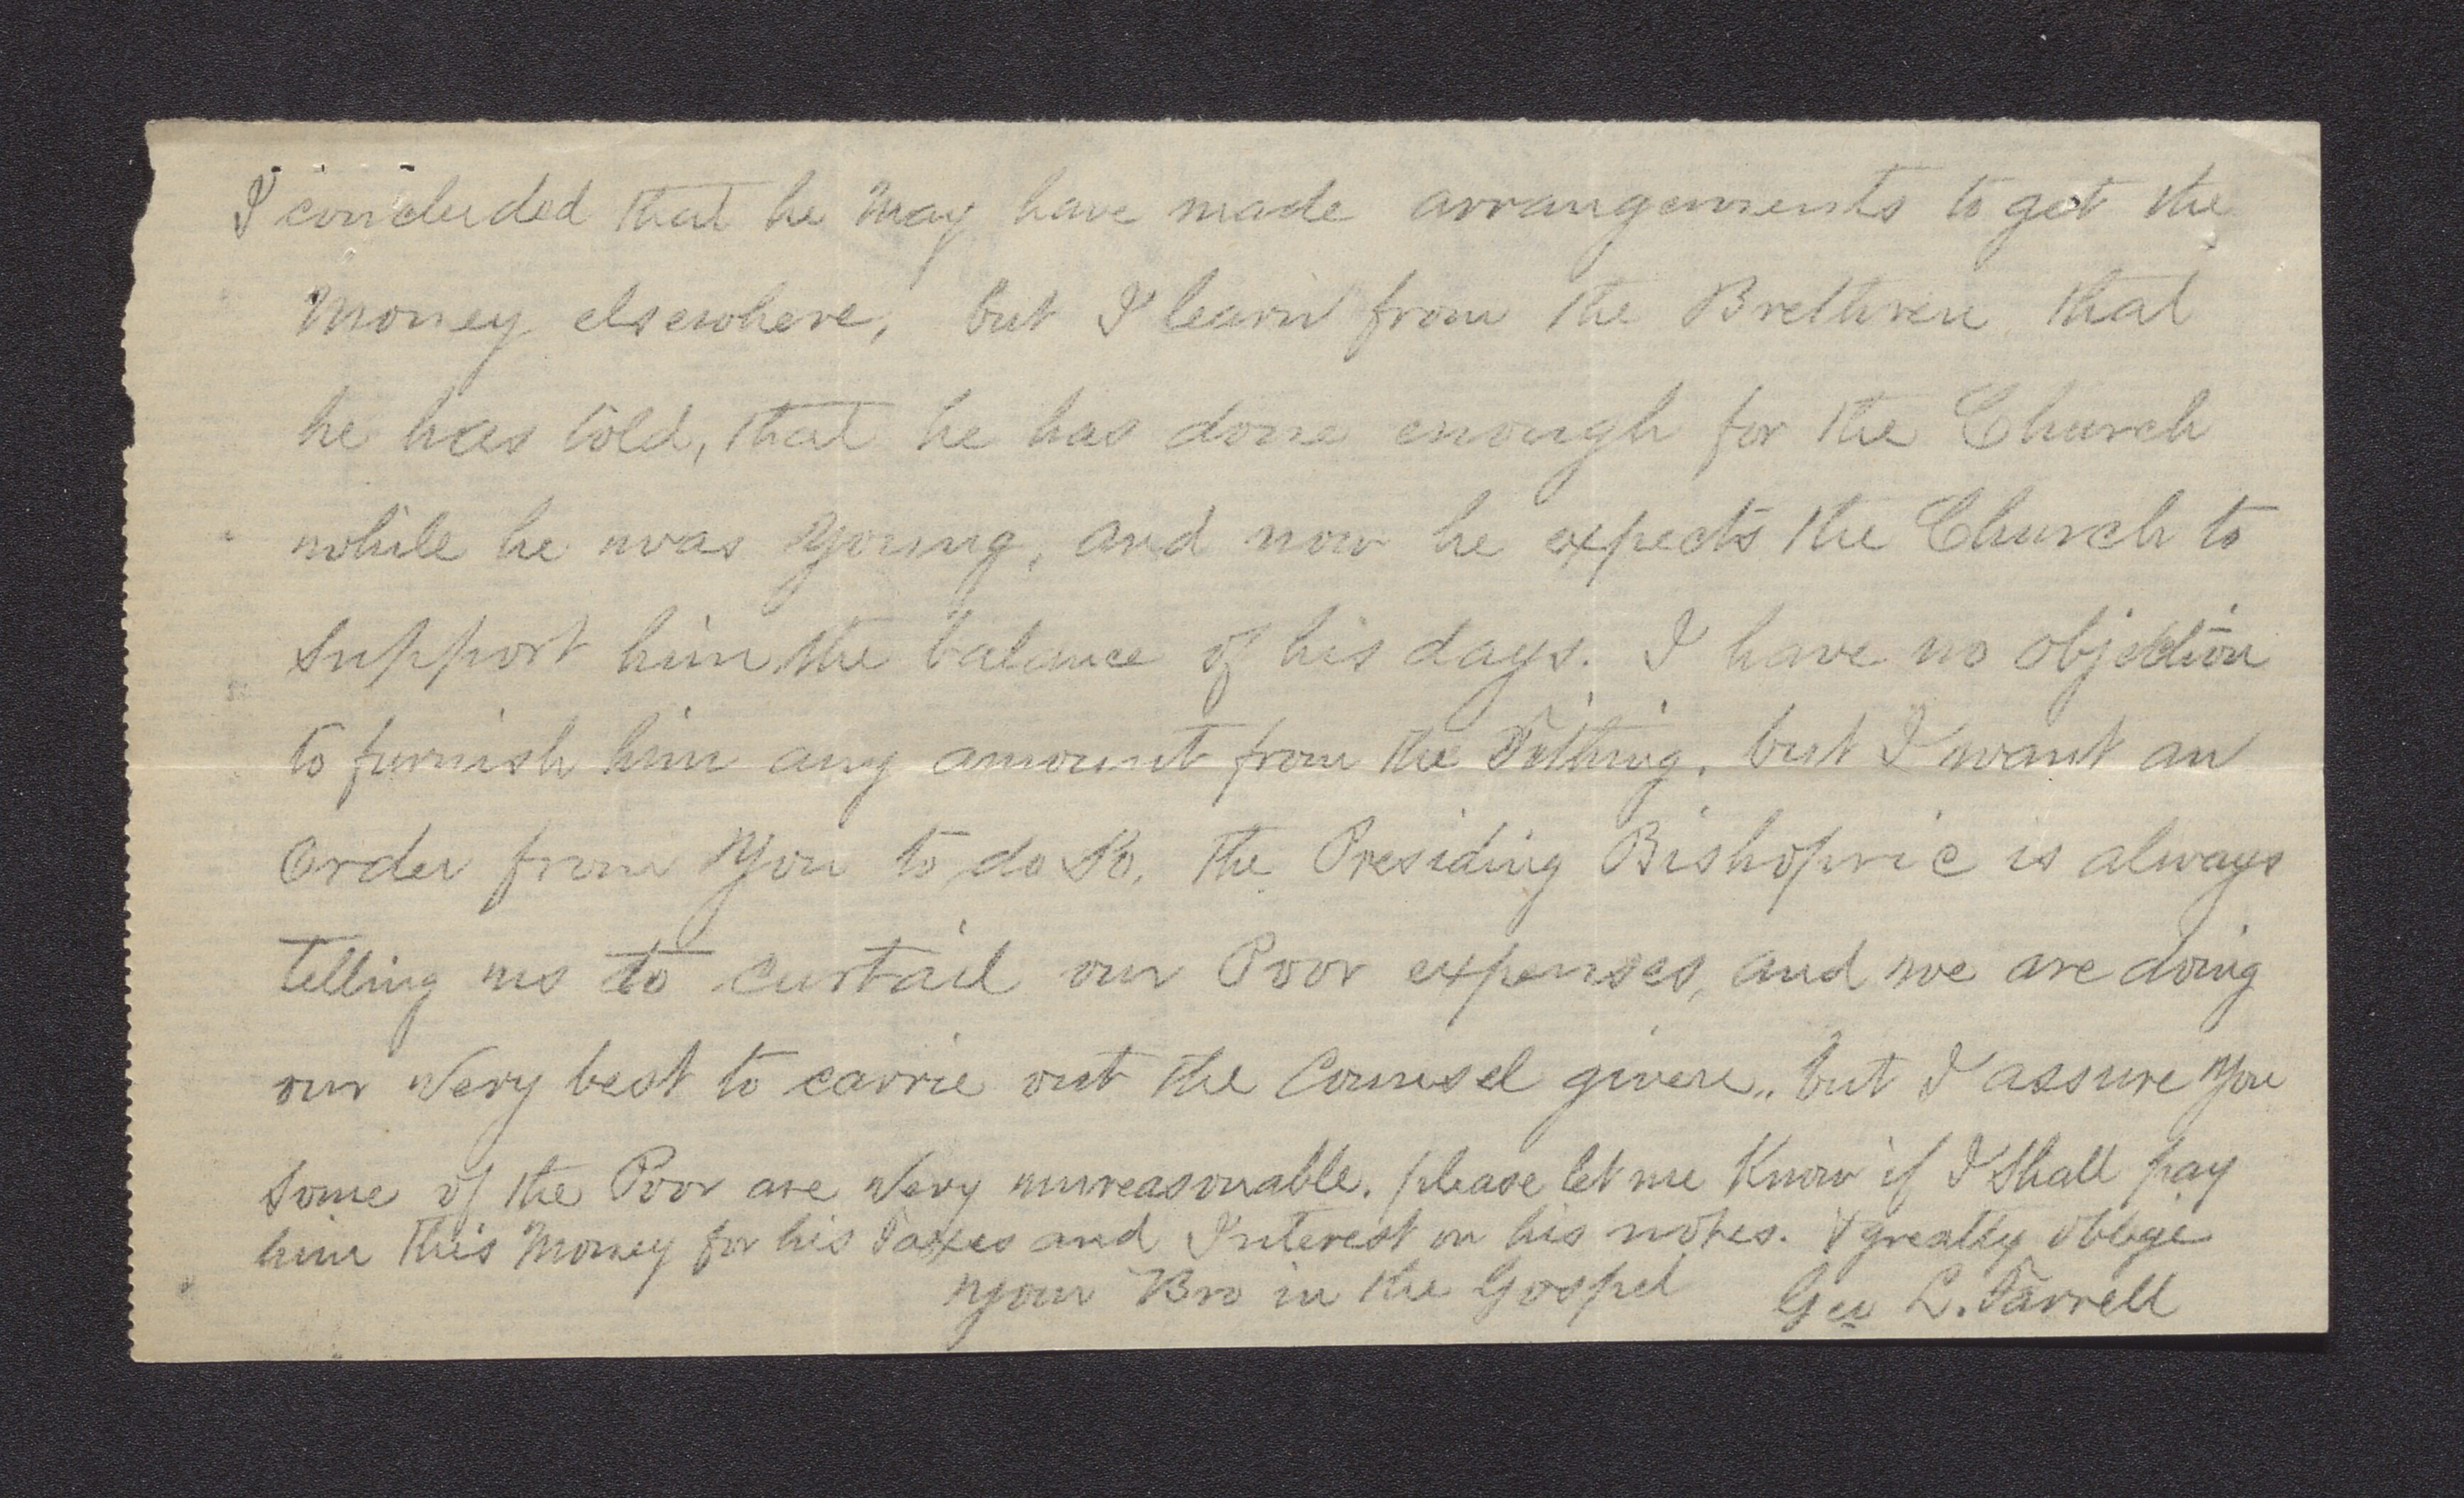 I concluded that he may have made arrangements to get the
Money elsewhere, but I learn from the Brethren that
he has told, that he has done enough for the Church
while he was Young, and now he expects the Church to
support him the balance of his days. I have no objection
to furnish him any amount from the Tithing, but I want an
Order from You to do So. The Presiding Bishopric is always
telling us to curtail our Poor expenses, and we are doing
our Very best to carrie out the Counsel given,, but I assure you
some of the Poor are Very unreasonable. please let me Know if I Shall pay
him this Money for his Taxes and Interest on his notes. & greatly oblege
Your Bro in the Gospel Geo L. Farrell